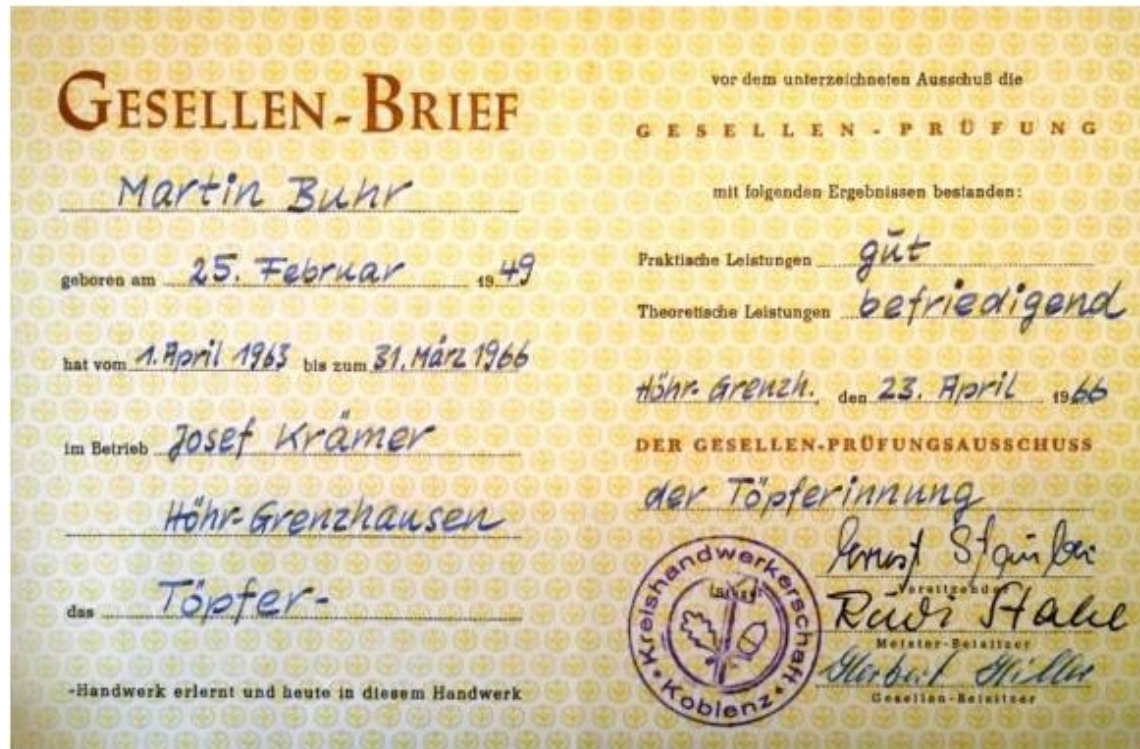 GESELLEN-BRIEF
Martin Buhr
geboren am 25. Februar 1949
hat vom 1. April 1963 bis zum 31. März 1966
im Betrieb Josef Krämer
Höhr-Grenzhausen
das Töpfer-
-Handwerk erlernt und heute in diesem Handwerk
vor dem unterzeichneten Ausschuß die
GESELLEN-PRÜFUNG
mit folgenden Ergebnissen bestanden:
Praktische Leistungen gut
Theoretische Leistungen befriedigend
Höhr-Grenzh. den 23. April 1966
DER GESELLEN-PRÜFUNGSAUSSCHUSS
der Töpferinnung
Ernst
Vorsitzender
Rudi Stahl
Meister-Beisitzer
Herbert
Gesellen-Beisitzer
Kreishandwerkerschaft
Koblenz